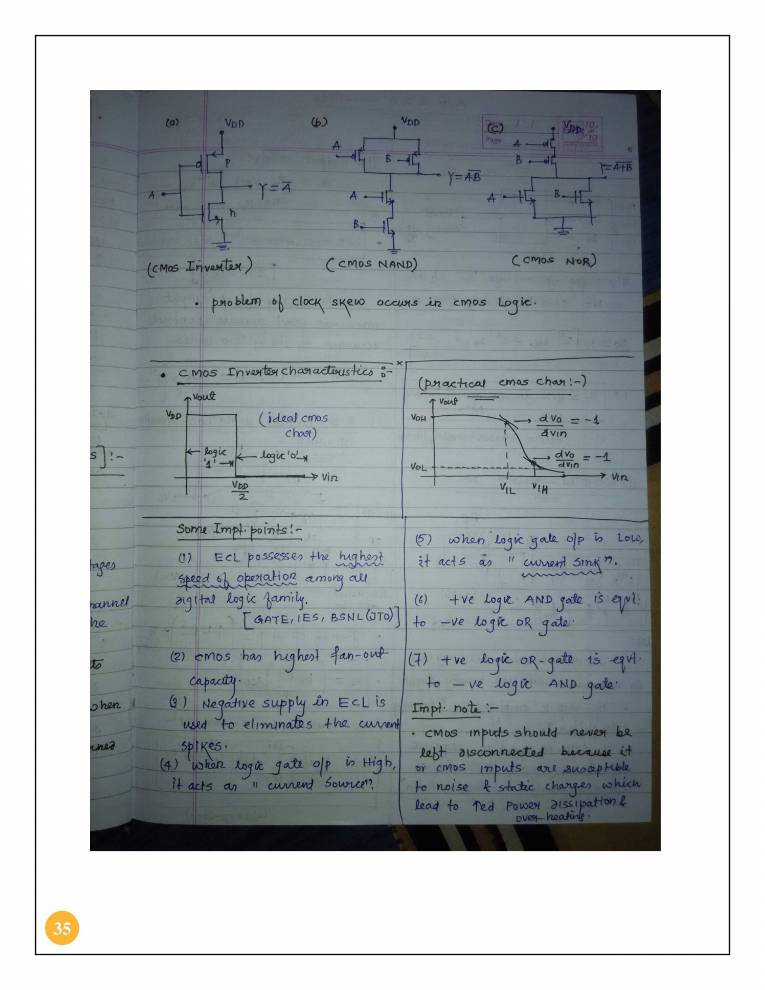 (a)
VDD
P
A
Y = A̅
n
(CMOS Inverter)
(b)
VDD
A
B
Y = A̅B̅
A
B
(CMOS NAND)
(C)
Page
VDD
A
B
Y = A̅+̅B̅
A
B
(CMOS NOR)
• problem of clock skew occurs in CMOS Logic.
• CMOS Inverter characteristics :-
Vout
VDD
(ideal cmos
char)
logic
'1'
logic '0'
Vin
VDD
2
(practical cmos char:-)
Vout
VOH
dVo
dVin
= -1
dVo
dVin
= -1
VOL
VIL
VIH
Vin
Some Impt. points:-
(1) ECL possesses the highest
speed of operation among all
digital logic family.
[GATE, IES, BSNL(JTO)]
(2) CMOS has highest fan-out
capacity.
(3) Negative supply in ECL is
used to eliminates the current
spikes.
(4) when logic gate o/p is High,
it acts as "current source".
(5) when logic gate o/p is Low,
it acts as "current sink".
(6) +ve logic AND gate is eqvl.
to -ve logic OR gate.
(7) +ve logic OR-gate is eqvl.
to -ve logic AND gate.
Impt. note:-
• CMOS inputs should never be
left disconnected because it
or CMOS inputs are susceptible
to noise & static charges which
lead to ↑ed Power dissipation &
over heating.
s]:-
tages
hannel
he
to
when
nned
35